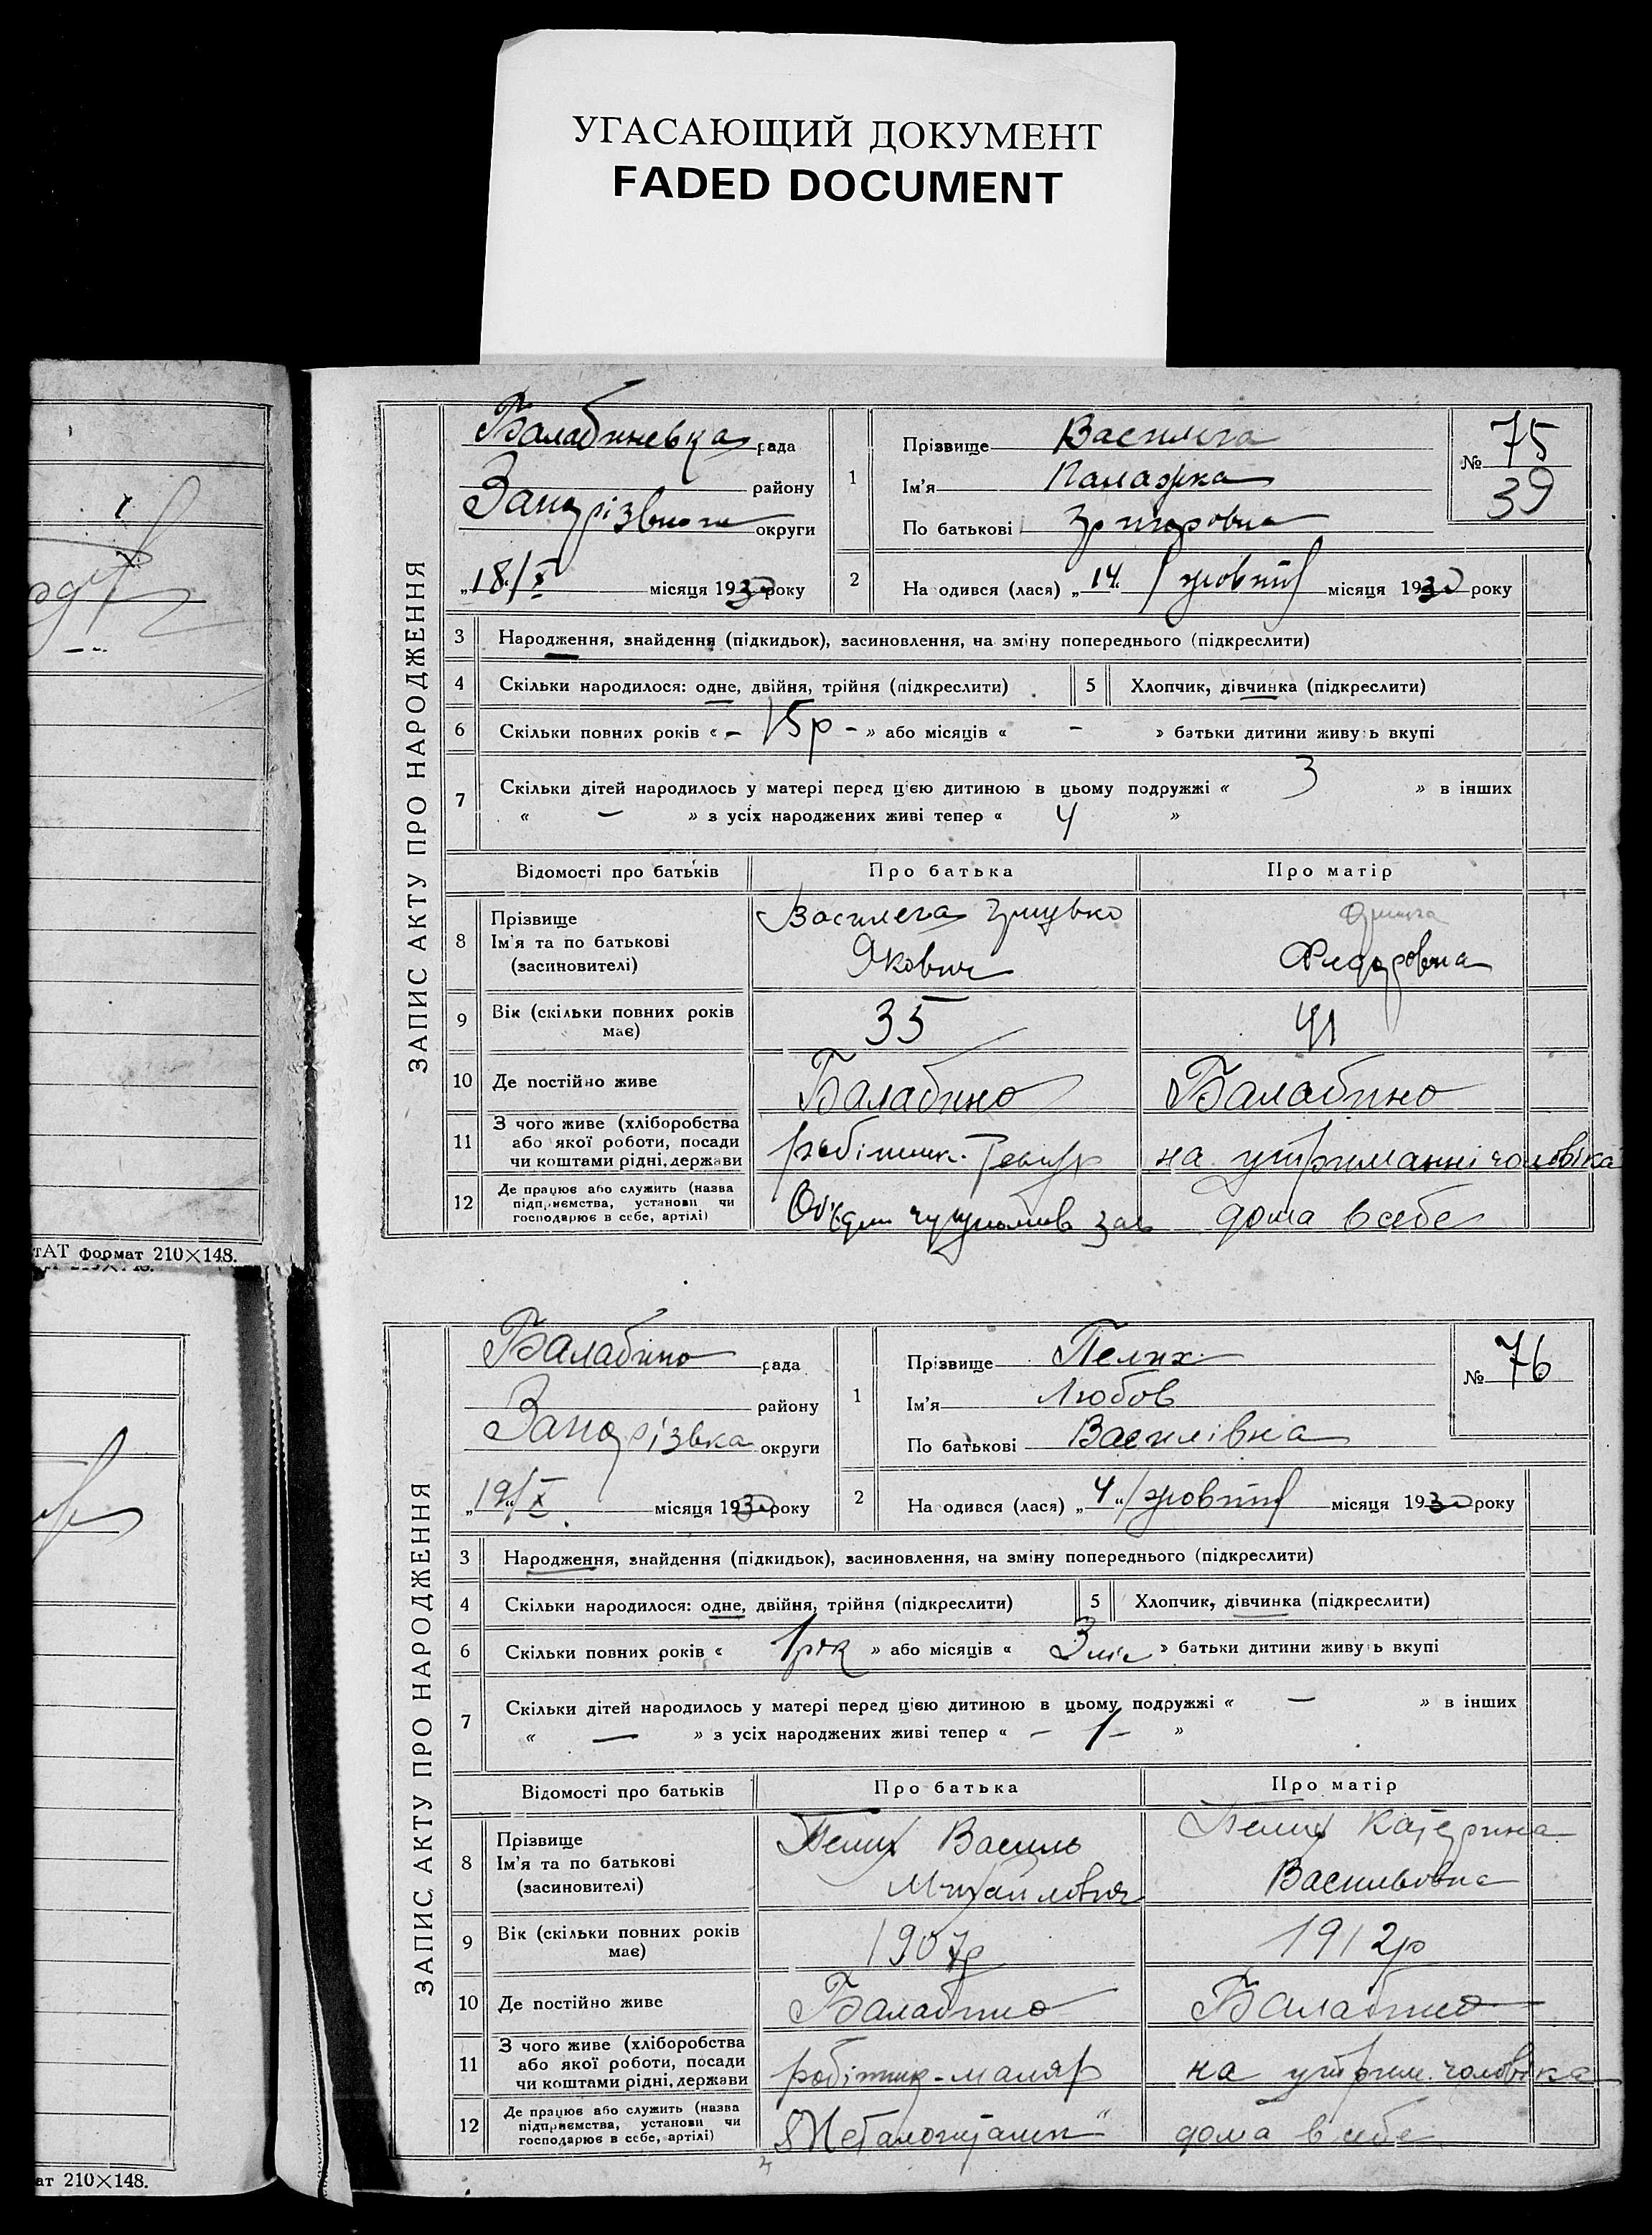 УГАСАЮЩИЙ ДОКУМЕНТ
FADED DOCUMENT
ЗАПИС АКТУ ПРО НАРОДЖЕННЯ
Балабиневка рада
району
округи
„18„/X місяця 1930 року
1
Прізвище Василега
Ім'я Палажка
По батькові Григоровна
№ 75
39
2 На одився (лася) „14„ жовтня місяця 1930 року
3 Народження, знайдення (підкидьок), засиновлення, на зміну попереднього (підкреслити)
4 Скільки народилося: одне, двійня, трійня (підкреслити) 5 Хлопчик, дівчинка (підкреслити)
6 Скільки повних років « – 15р – » або місяців « – » батьки дитини живу ь вкупі
7 Скільки дітей народилось у матері перед цією дитиною в цьому подружжі « 3 » в інших
« – » з усіх народжених живі тепер « 4 »
Відомості про батьків Про батька Про матір
8 Прізвище
Ім'я та по батькові
(засиновителі)
Василега Грицько
Якович
Федоровна
9 Вік (скільки повних років має) 35 41
10 Де постійно живе Балабино Балабино
11 З чого живе (хліборобства
або якої роботи, посади
чи коштами рідні, держави
робітник. на утриманні чоловіка
12 Де працює або служить (назва
підприємства, установи чи
господарює в себе, артілі)
дома в себе
тАТ формат 210×148.
ЗАПИС АКТУ ПРО НАРОДЖЕННЯ
Балабино рада
району
Запорізька округи
„19„/X місяця 1930 року
1
Прізвище Пелих
Ім'я Любов
По батькові Василівна
№ 76
2 На одився (лася) „4„ жовтня місяця 1930 року
3 Народження, знайдення (підкидьок), засиновлення, на зміну попереднього (підкреслити)
4 Скільки народилося: одне, двійня, трійня (підкреслити) 5 Хлопчик, дівчинка (підкреслити)
6 Скільки повних років « 1 рік » або місяців « 3 міс » батьки дитини живу ь вкупі
7 Скільки дітей народилось у матері перед цією дитиною в цьому подружжі « – » в інших
« – » з усіх народжених живі тепер « – 1 – »
Відомості про батьків Про батька Про матір
8 Прізвище
Ім'я та по батькові
(засиновителі)
Пелих Василь
Михайлович
Пелих Катерина
Васильовна
9 Вік (скільки повних років має) 1907р 1912р
10 Де постійно живе Балабино Балабино
11 З чого живе (хліборобства
або якої роботи, посади
чи коштами рідні, держави
робітник-маляр на утрим. чоловіка
12 Де працює або служить (назва
підприємства, установи чи
господарює в себе, артілі)
дома в себе
ат 210×148.